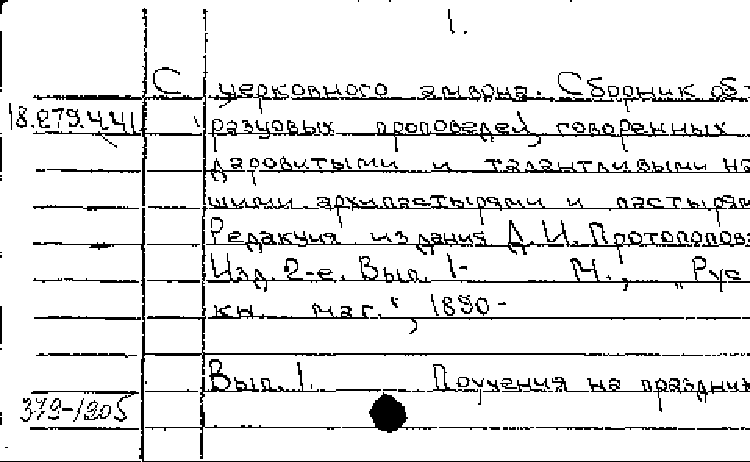 1.
С церковного амвона. Сборник об-
18.279.4.41
разцовых проповедей, говоренных
даровитыми и талантливыми на
шими архипастырями и пастырям
Редакция издания Д. И. Протопопова
Изд. 2-е. Вып. 1- М., "Рус
кн. маг.", 1890-
Вып. 1. Поучения на праздник
379-1905